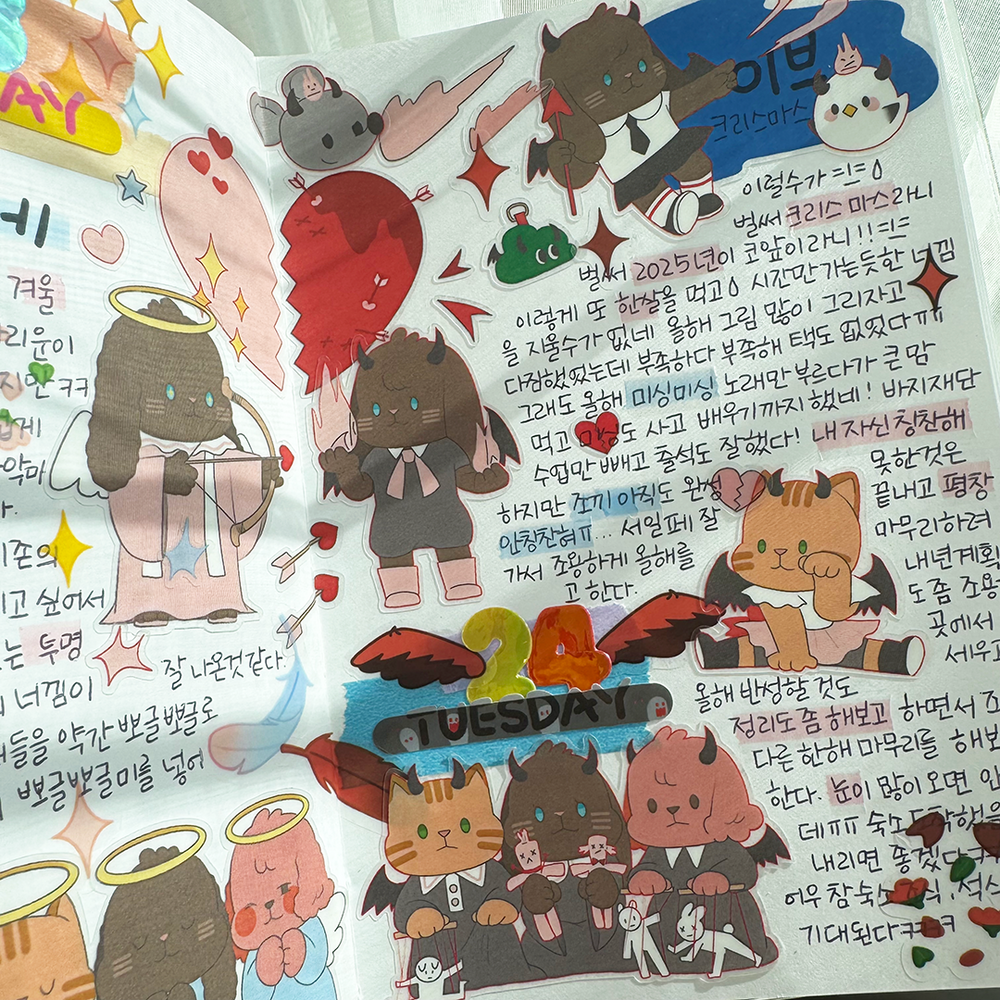 AY
네
겨울
리운이
지만 ㅋㅋ
기존의
리고 싶어서
는 투명
너낌이
잘 나온것 같다.
들을 약간 뽀글뽀글로
뽀글뽀글미를 넣어
이브
크리스마스
이럴수가 ㅋ!ㅋ
벌써 크리스마스라니
벌써 2025년이 코앞이라니!! ㅋ!ㅋ
이렇게 또 한살을 먹고 시간만 가는듯한 너낌
을 지울수가 없네 올해 그림 많이 그리자고
다짐했었는데 부족하다 부족해 택도 없었다ㅠㅠ
그래도 올해 미싱미싱 노래만 부르다가 큰 맘
먹고 미싱도 사고 배우기까지 했네! 바지재단
수업만 빼고 출석도 잘했다! 내 자신 칭찬해
하지만 조끼 아직도 완성 못한것은
안칭찬혀ㅠ... 서일페 잘 끝내고 평창
가서 조용하게 올해를 마무리하려
고 한다. 내년계획
도 좀 조용
곳에서
세우고
24
TUESDAY
올해 반성할 것도
정리도 좀 해보고 하면서 조
다른 한해 마무리를 해보
한다. 눈이 많이 오면 안
데ㅠㅠ 숙소 도착해
내리면 좋겠다ㅋ
어우 참숙소
기대된다ㅋㅋㅋ